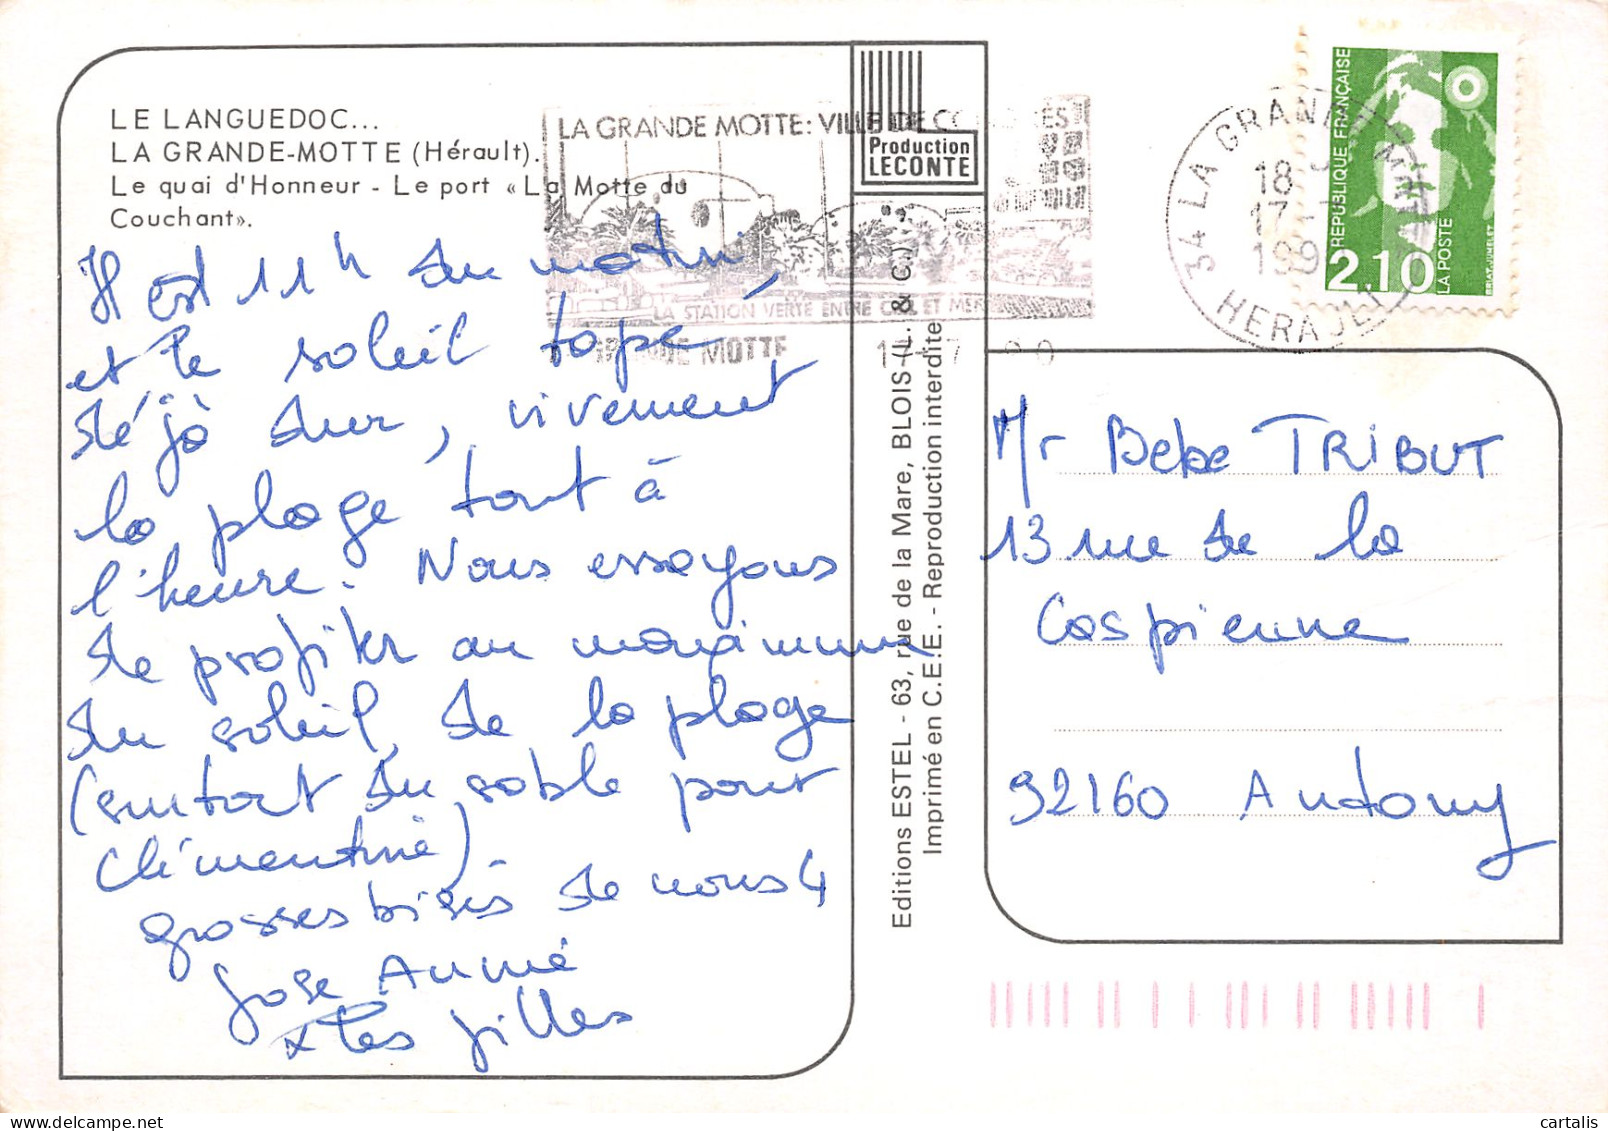 LE LANGUEDOC...
LA GRANDE-MOTTE (Hérault).
Le quai d'Honneur - Le port « La Motte du
Couchant».
Il est 11h du matin,
et le soleil tape
déjà dur, vivement
la plage tout à
l'heure. Nous essayons
de profiter au maximum
du soleil, de la plage
(surtout du sable pour
Clémentine)
grosses bises de nous 4
José Annie
+ les filles
LA GRANDE MOTTE: VILLE DE CONGRES
LA STATION VERTE ENTRE CIEL ET MER
GRANDE MOTTE 17-7-90
Production
LECONTE
Editions ESTEL - 63, rue de la Mare, BLOIS (L. & C.)
Imprimé en C.E.E. - Reproduction interdite
34 LA GRANDE MOTTE
18
17-7
199
HERAULT
REPUBLIQUE FRANÇAISE
2,10
LA POSTE
Mr Bebe TRIBUT
13 rue de la
Caspienne
92160 Antony
cartalis